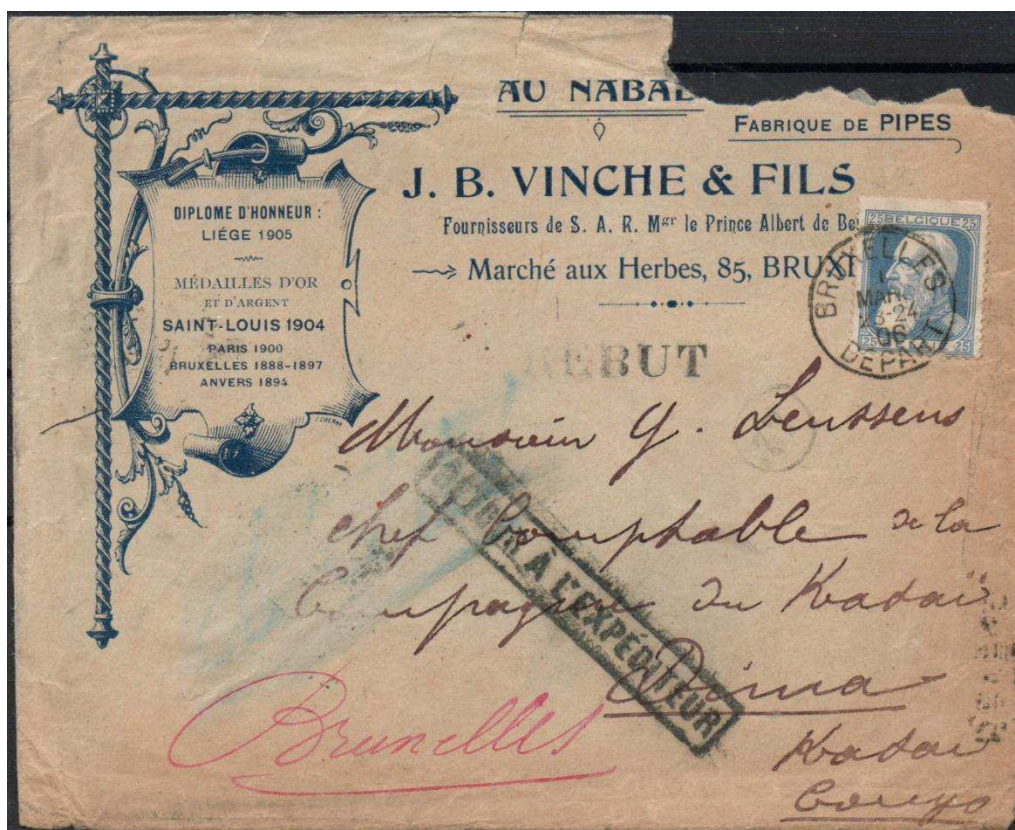 AU NABAB
FABRIQUE DE PIPES
J. B. VINCHE & FILS
Fournisseurs de S. A. R. Mgr le Prince Albert de Be
Marché aux Herbes, 85, BRUX
DIPLOME D'HONNEUR :
LIÉGE 1905
MÉDAILLES D'OR
ET D'ARGENT
SAINT-LOUIS 1904
PARIS 1900
BRUXELLES 1888-1897
ANVERS 1894
25 BELGIQUE 25
25 25
BRUXELLES
MAR
-24
06
DEPART
REBUT
Monsieur G. Leussens
chef Comptable de la
Compagnie du Kasaï
RETOUR À L'EXPÉDITEUR
Dima
Kasaï
Congo
Bruxelles